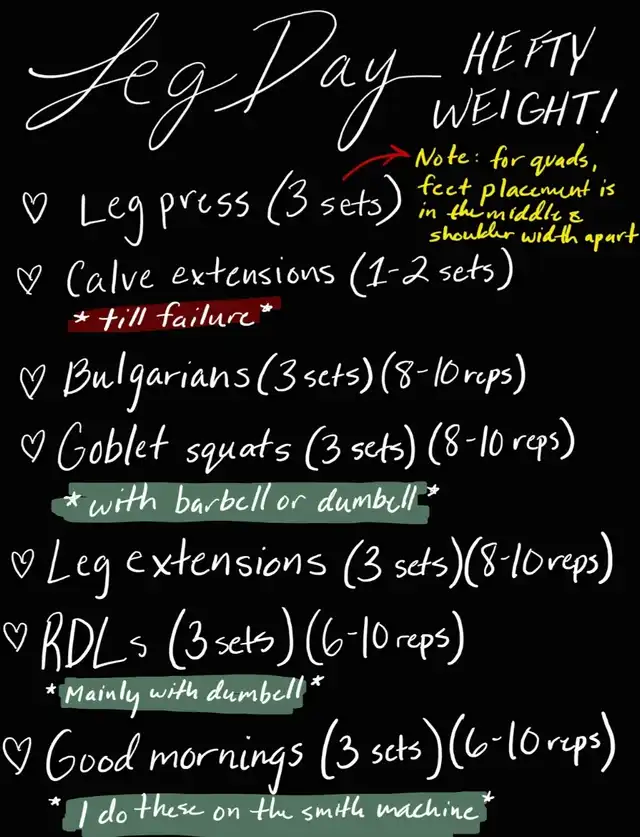 Leg Day
HEFTY
WEIGHT!
Note: for quads,
feet placement is
in the middle &
shoulder width apart
♡ Leg press (3 sets)
♡ Calve extensions (1-2 sets)
* till failure *
♡ Bulgarians (3 sets) (8-10 reps)
♡ Goblet squats (3 sets) (8-10 reps)
* with barbell or dumbell *
♡ Leg extensions (3 sets) (8-10 reps)
♡ RDLs (3 sets) (6-10 reps)
* Mainly with dumbell *
♡ Good mornings (3 sets) (6-10 reps)
* I do these on the smith machine *